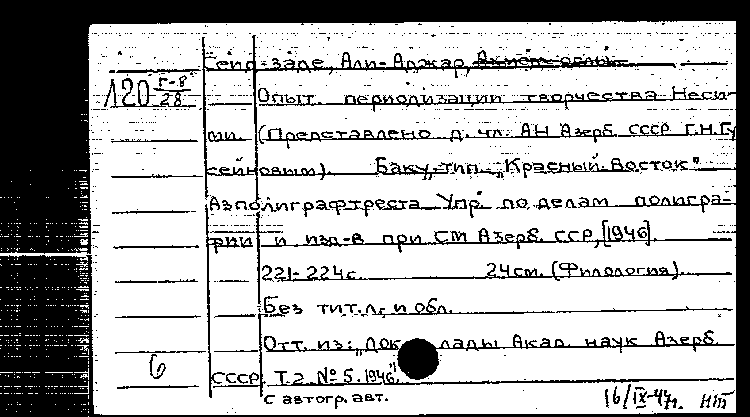 Сеид-заде, Али-Аджар,
Л20 Г-8/28
Опыт периодизации творчества Неси-
ми. (Представлено д. чл. АН Азерб. ССР Г.Н. Гу
сейновым). Баку, тип. „Красный Восток"
Азполиграфтреста Упр. по делам полигра-
фии и изд-в при СМ Азерб. ССР, [1946].
221-224с. 24см. (Филология).
Без тит. л. и обл.
Отт. из: „Доклады Акад. наук Азерб.
6
ССР, Т.2 № 5. 1946."
С автогр. авт.
16/IX-47г. НТ